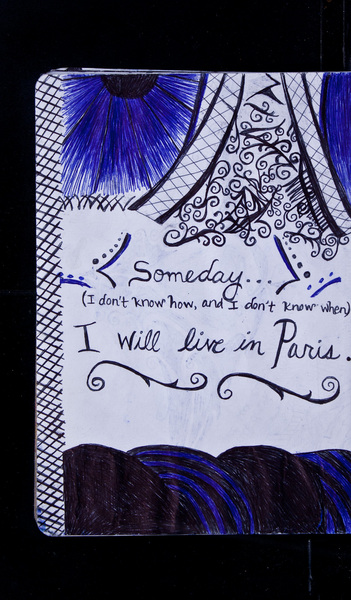 Someday...
(I don't know how, and I don't know when)
I will live in Paris.